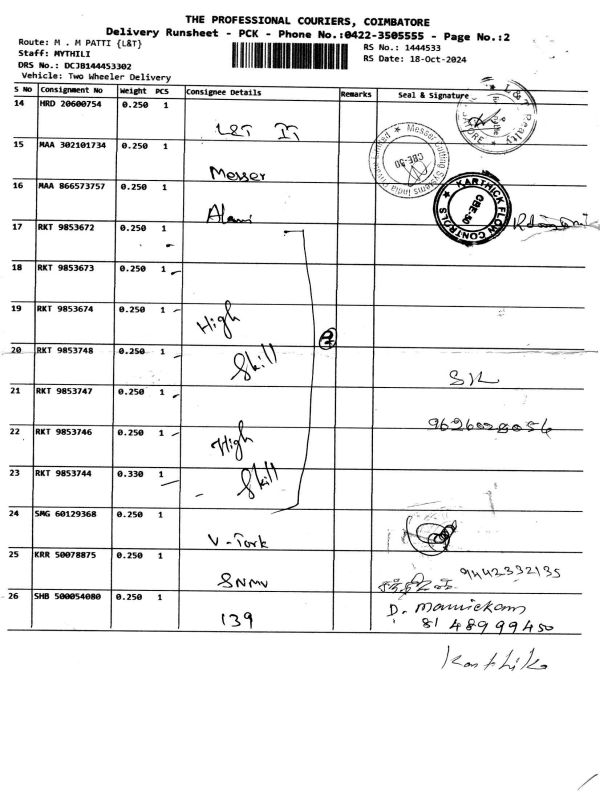 THE PROFESSIONAL COURIERS, COIMBATORE
Delivery Runsheet - PCK - Phone No.:0422-3505555 - Page No.:2
Route: M . M PATTI {L&T}
RS No.: 1444533
Staff: MYTHILI
RS Date: 18-Oct-2024
DRS No.: DCJB144453302
Vehicle: Two Wheeler Delivery
S No Consignment No Weight PCS Consignee Details Remarks Seal & Signature
14 HRD 20600754 0.250 1
L&T IT
15 MAA 302101734 0.250 1
Messer
Messer Cutting Systems India Private Limited
CBE-50
16 MAA 866573757 0.250 1
KARTHICK FLOW CONTROLS
CBE-50
17 RKT 9853672 0.250 1
18 RKT 9853673 0.250 1
19 RKT 9853674 0.250 1
High
20 RKT 9853748 0.250 1
Skill
21 RKT 9853747 0.250 1
22 RKT 9853746 0.250 1
High
23 RKT 9853744 0.330 1
Skill
24 SMG 60129368 0.250 1
V-Tork
25 KRR 50078875 0.250 1
SNMV
9442332135
26 SHB 500054080 0.250 1
139
D. Manickam
8148999450
Karthika